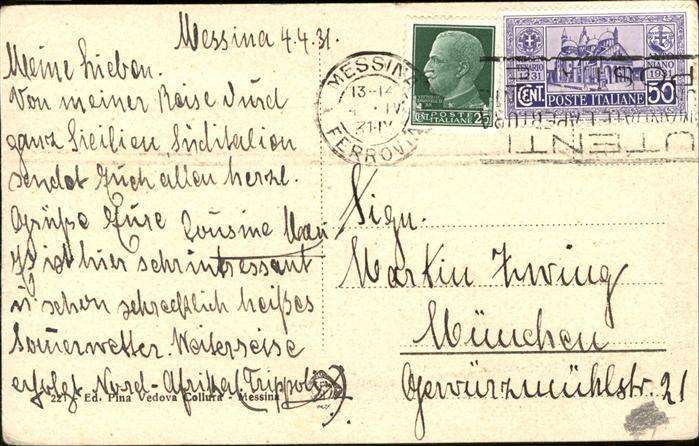 Messina 4.4.31.
Meine Lieben.
Von meiner Reise durch
ganz Sicilien Süditalien
sendet Euch allen herzl.
Grüße Eure Cousine
Es ist hier sehr intressant
u. schon schrecklich heißes
Somerwetter. Weiterreise
erfolgt Nord-Afrika (Trippolis)
221 Ed. Pina Vedova Collura - Messina
MESSINA
13-14
4 IV
31 IX
FERROVIA
POSTE ITALIANE
CENT. 25
1231 1931
CENT. POSTE ITALIANE 50
Sign.
Martin Zwing
München
Gewürzmühlstr. 21